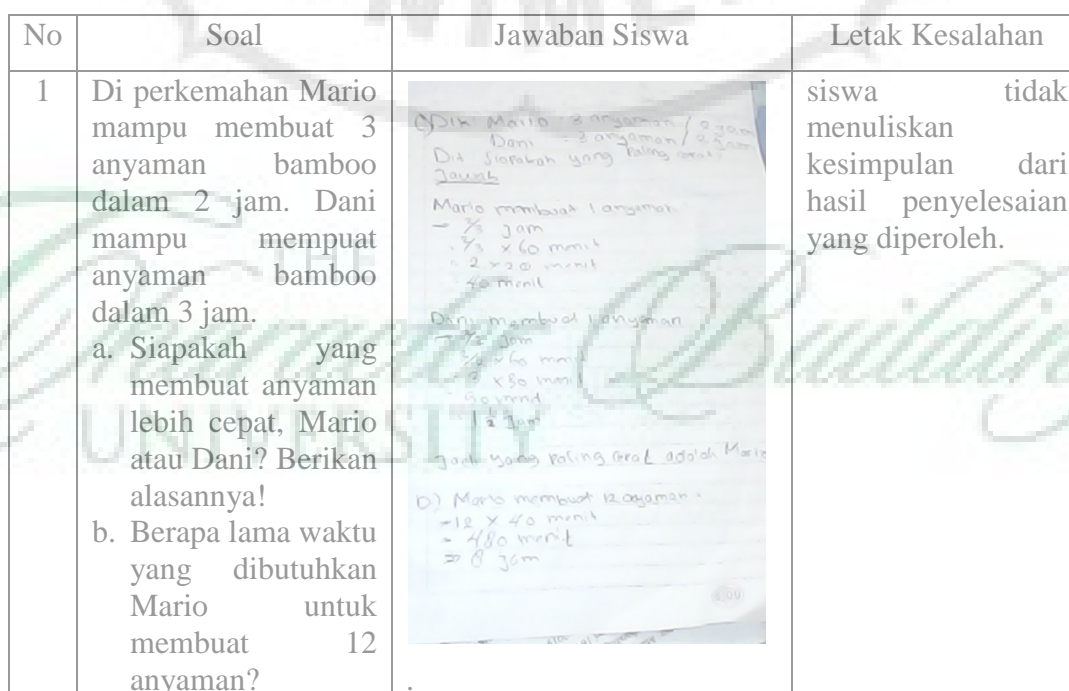 No Soal Jawaban Siswa Letak Kesalahan
1 Di perkemahan Mario
mampu membuat 3
anyaman bamboo
dalam 2 jam. Dani
mampu mempuat
anyaman bamboo
dalam 3 jam.
a. Siapakah yang
membuat anyaman
lebih cepat, Mario
atau Dani? Berikan
alasannya!
b. Berapa lama waktu
yang dibutuhkan
Mario untuk
membuat 12
anyaman?
Dik Mario : 3 anyaman / 2 jam
Dani : 2 anyaman /
Dit Siapakah yang Paling
Jawab
Mario membuat 1 anyaman
= 2/3 Jam
= 2/3 x 60 menit
= 2 x 20 menit
= 40 menit
Dani membuat 1 anyaman
Jam
x 60
1 1/2 Jam
yang Paling adalah Mario
b) Mario membuat 12 anyaman
= 12 x 40 menit
= 480 menit
= 8 Jam
.
siswa tidak
menuliskan
kesimpulan dari
hasil penyelesaian
yang diperoleh.
THE
Character Building
UNIVERSITY